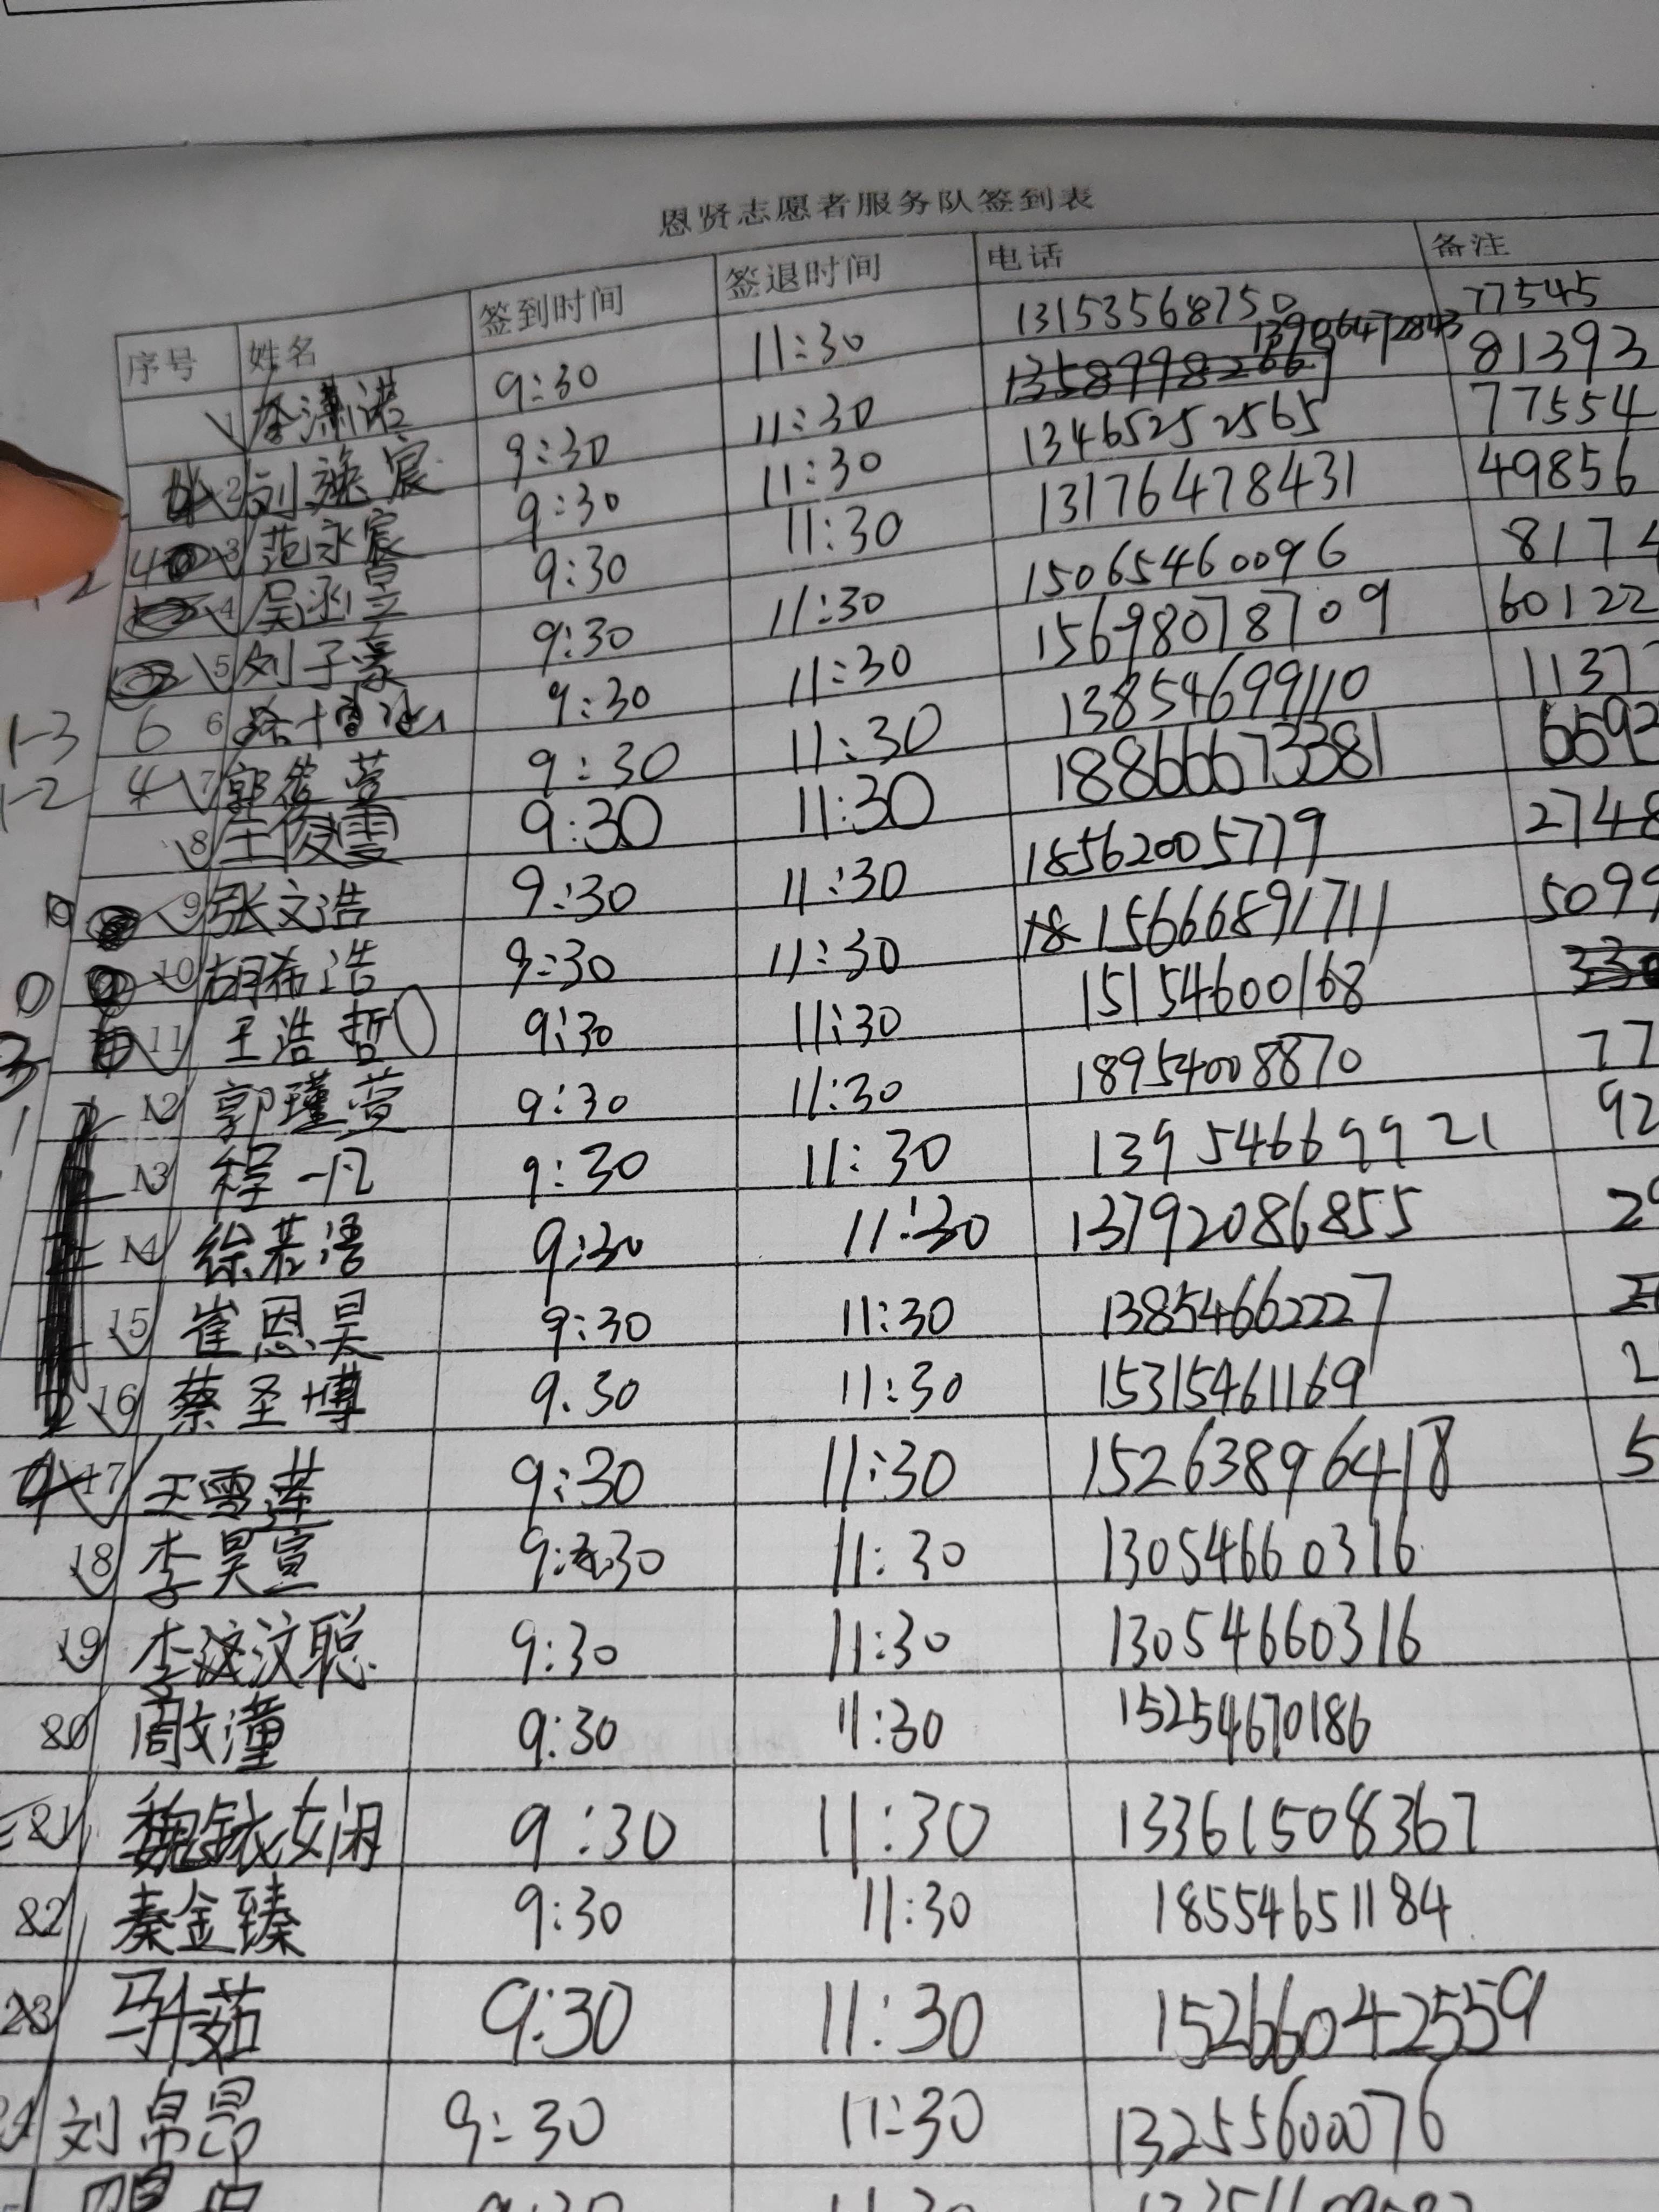 恩贤志愿者服务队签到表
序号 姓名 签到时间 签退时间 电话 备注
1 李潇诺 9:30 11:30 13153568750 77545
2 刘逸宸 9:30 11:30 13906472843 81393
3 范永宸 9:30 11:30 13465252565 77554
4 吴丞昱 9:30 11:30 13176478431 49856
5 刘子豪 9:30 11:30 15065460096 8174
1-3 6 6 9:30 11:30 15698078709 60122
1-2 4 7 郭俊萱 9:30 11:30 13854699110 1137
8 王俊雯 9:30 11:30 18866673381 6592
9 张文浩 9:30 11:30 18562005779 2748
10 胡希浩 9:30 11:30 15666891711 5099
11 王浩哲 9:30 11:30 15154600168
12 郭瑾萱 9:30 11:30 18954008870 77
13 程一凡 9:30 11:30 13954669921 92
14 徐若语 9:30 11:30 13792086855
15 崔恩昊 9:30 11:30 13854662227
16 蔡圣博 9.30 11:30 15315461169 2
17 王雪莲 9:30 11:30 15263896418 5
18 李昊宣 9:30 11:30 13054660316
19 李汶聪 9:30 11:30 13054660316
20 周文潼 9:30 11:30 15254670186
21 魏铱娴 9:30 11:30 13361508367
22 秦金臻 9:30 11:30 18554651184
23 马千茹 9:30 11:30 15266042559
24 刘帛昂 9:30 11:30 13255600076